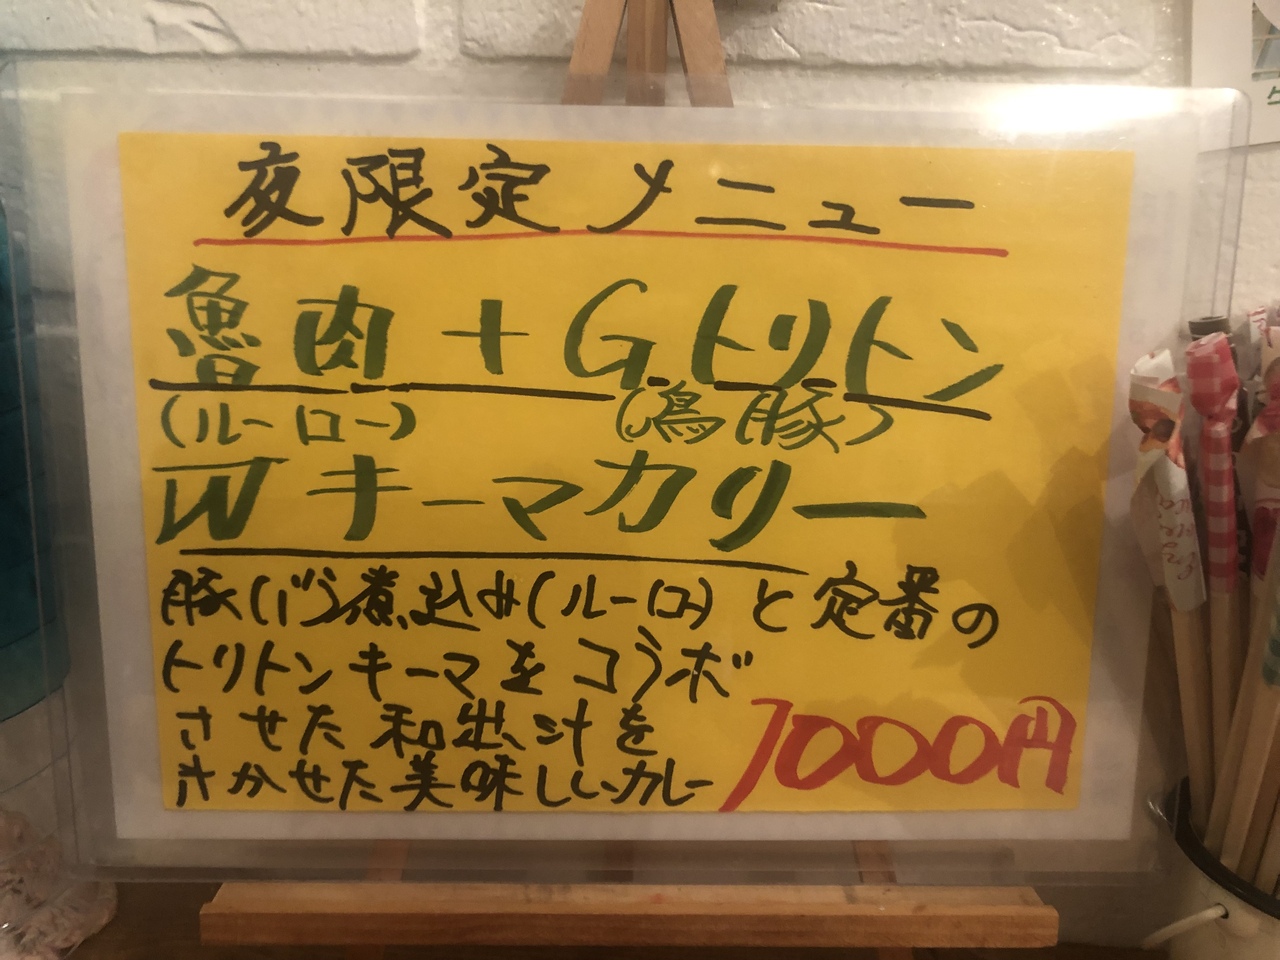 夜限定メニュー
魯肉+Gトリトン
(ルーロー) (鳥豚)
Wキーマカリー
豚(バラ)煮込み(ルーロー)と定番の
トリトンキーマをコラボ
させた和出汁を
きかせた美味しいカレー
1000円